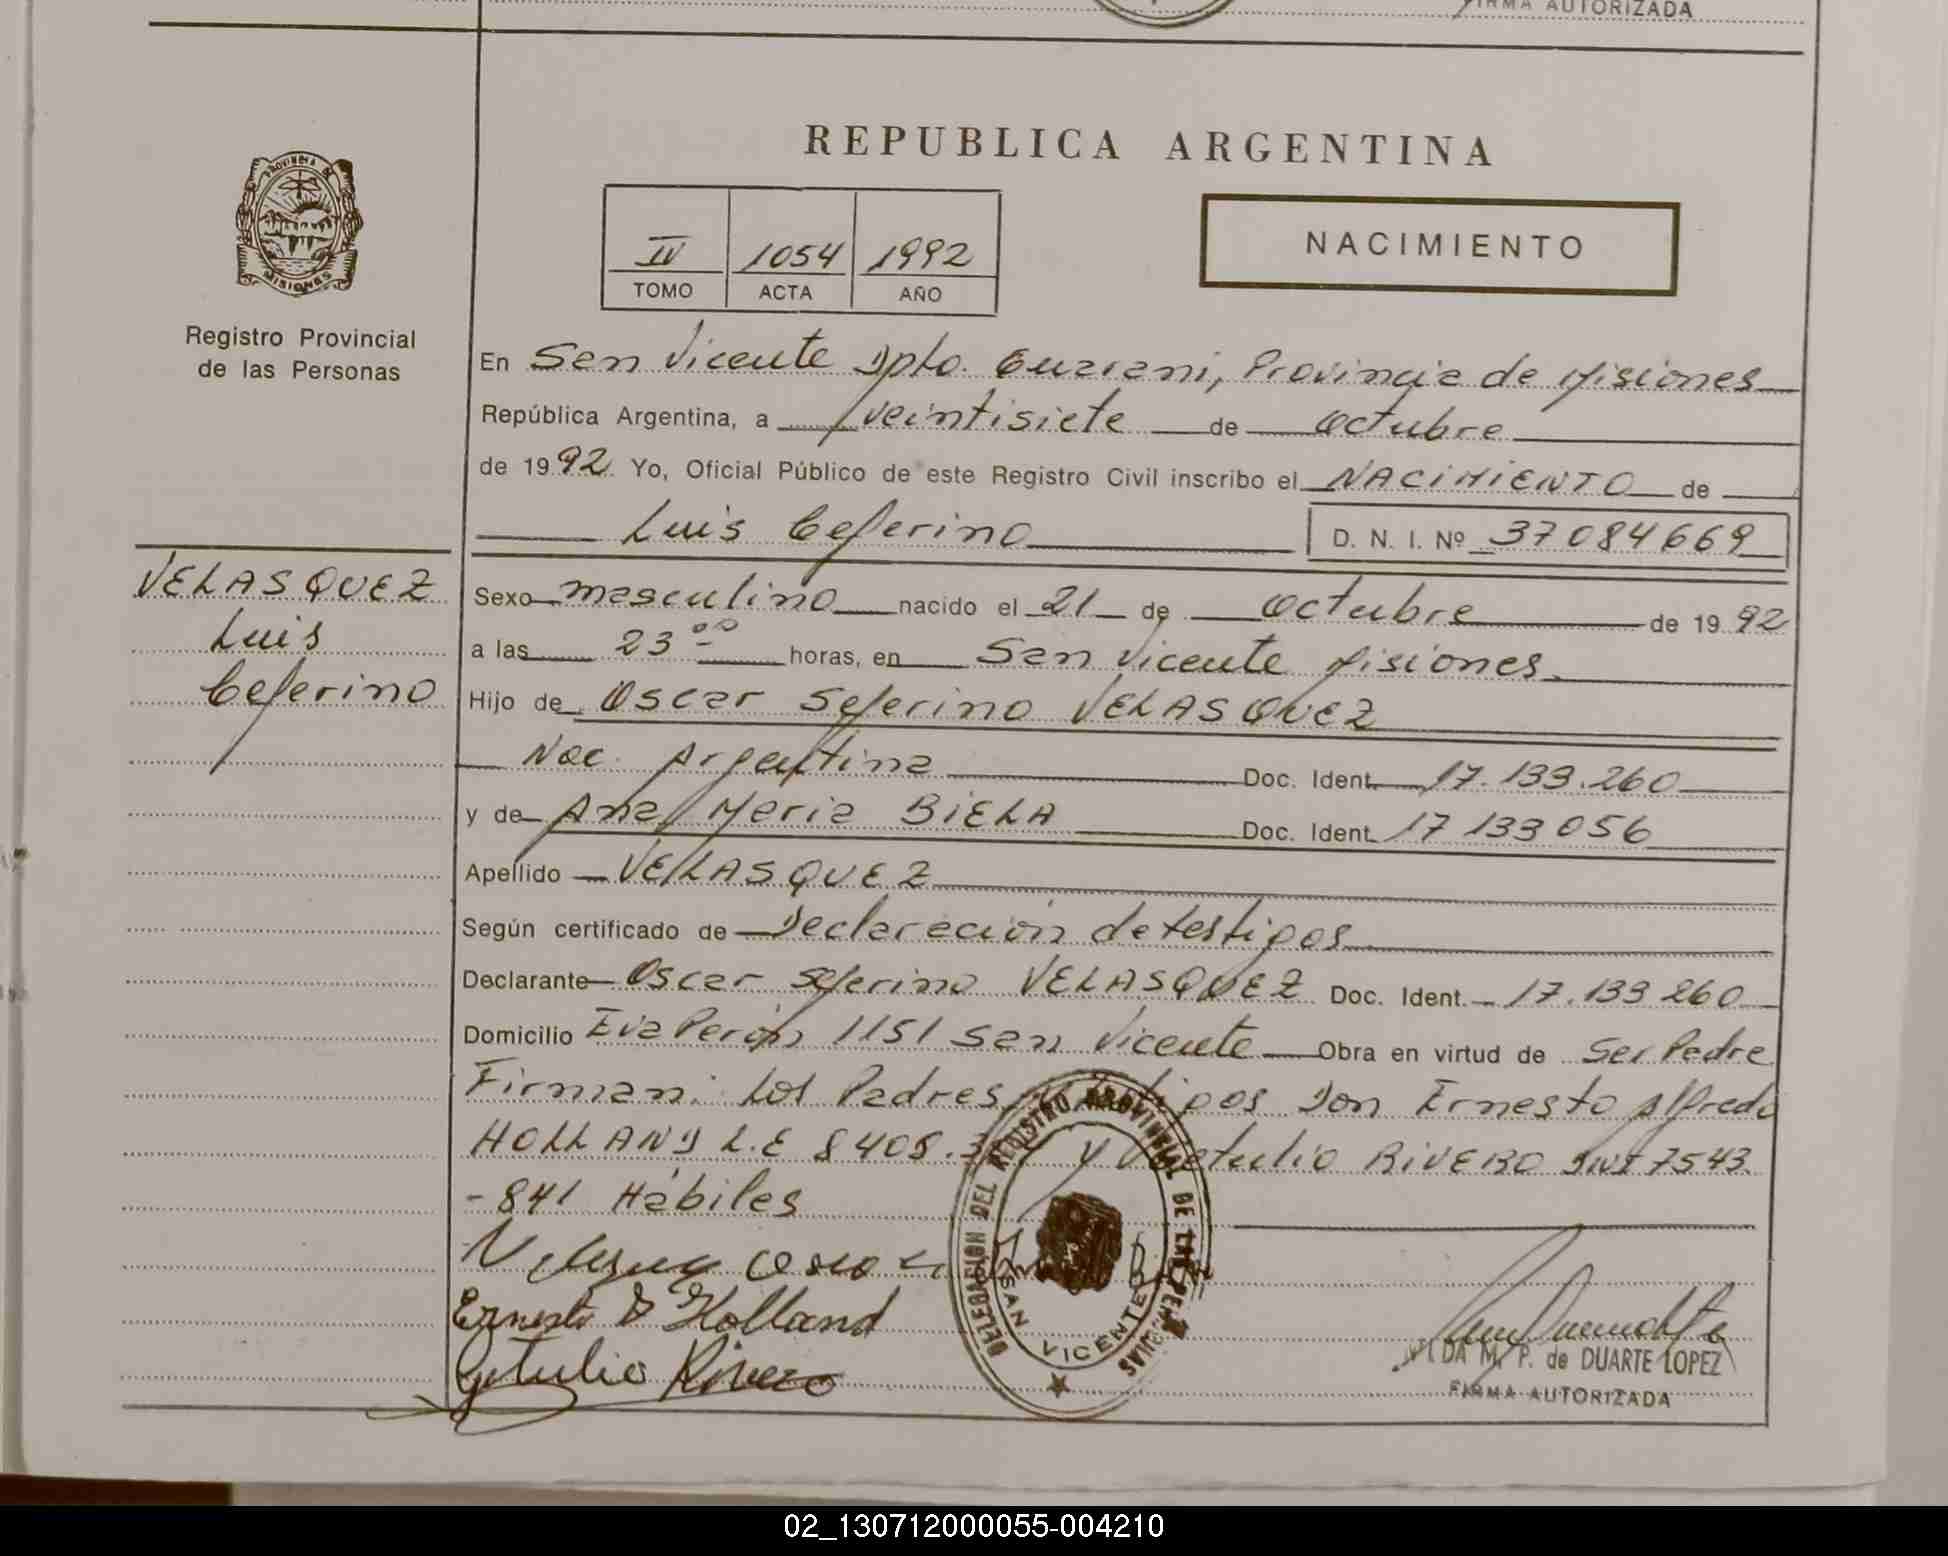 FIRMA AUTORIZADA
REPUBLICA ARGENTINA
PROVINCIA DE
MISIONES
Registro Provincial
de las Personas
IV 1054 1992
TOMO ACTA AÑO
NACIMIENTO
En San Vicente Dpto. Guarani, Provincia de Misiones
República Argentina, a veintisiete de octubre
de 1992 Yo, Oficial Público de este Registro Civil inscribo el NACIMIENTO de
Luis Ceferino D. N. I. Nº 37084669
VELASQUEZ
Luis
Ceferino
Sexo masculino nacido el 21 de octubre de 1992
a las 23 00 horas, en San Vicente Misiones
Hijo de Oscar Seferino VELASQUEZ
Nac. Argentina Doc. Ident. 17.133.260
y de Ana Maria BIELA Doc. Ident. 17 133 056
Apellido VELASQUEZ
Según certificado de Declaracion de testigos
Declarante Oscar Seferino VELASQUEZ Doc. Ident. 17.133 260
Domicilio Eva Perón 1151 San Vicente Obra en virtud de Ser Padre
Firman: Los Padres, Don Ernesto Alfredo
HOLLAND L.E 8408.3 y RIVERO DNI 7543
-841 Hábiles
Ernesto Holland
Getulio Rivero
DELEGACION DEL REGISTRO PROVINCIAL DE LAS PERSONAS
SAN VICENTE
M. P. de DUARTE LOPEZ
FIRMA AUTORIZADA
02_130712000055-004210